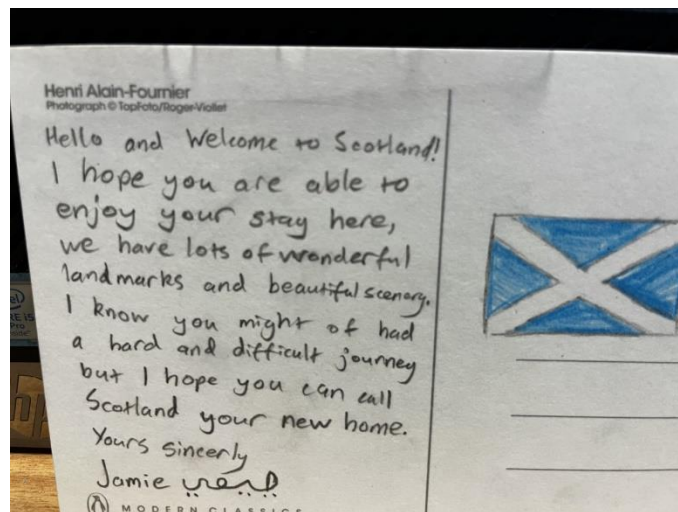 Henri Alain-Fournier
Photograph © TopFoto/Roger-Viollet
Hello and Welcome to Scotland!
I hope you are able to
enjoy your stay here,
we have lots of wonderful
landmarks and beautiful scenery.
I know you might of had
a hard and difficult journey
but I hope you can call
Scotland your new home.
Yours sincerly
Jamie
MODERN CLASSICS